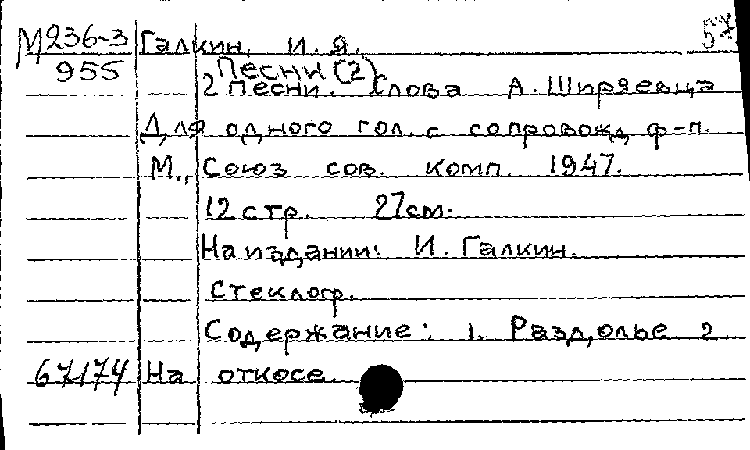 М236-3 Галкин, И. Я. 57
955 Песни (2)
2 песни. Слова А. Ширяевца
Для одного гол. с сопровожд. ф-п.
М., Союз сов. комп. 1947.
12 стр. 27 см.
На издании: И. Галкин.
Стеклогр.
Содержание: 1. Раздолье 2
67174 На откосе.